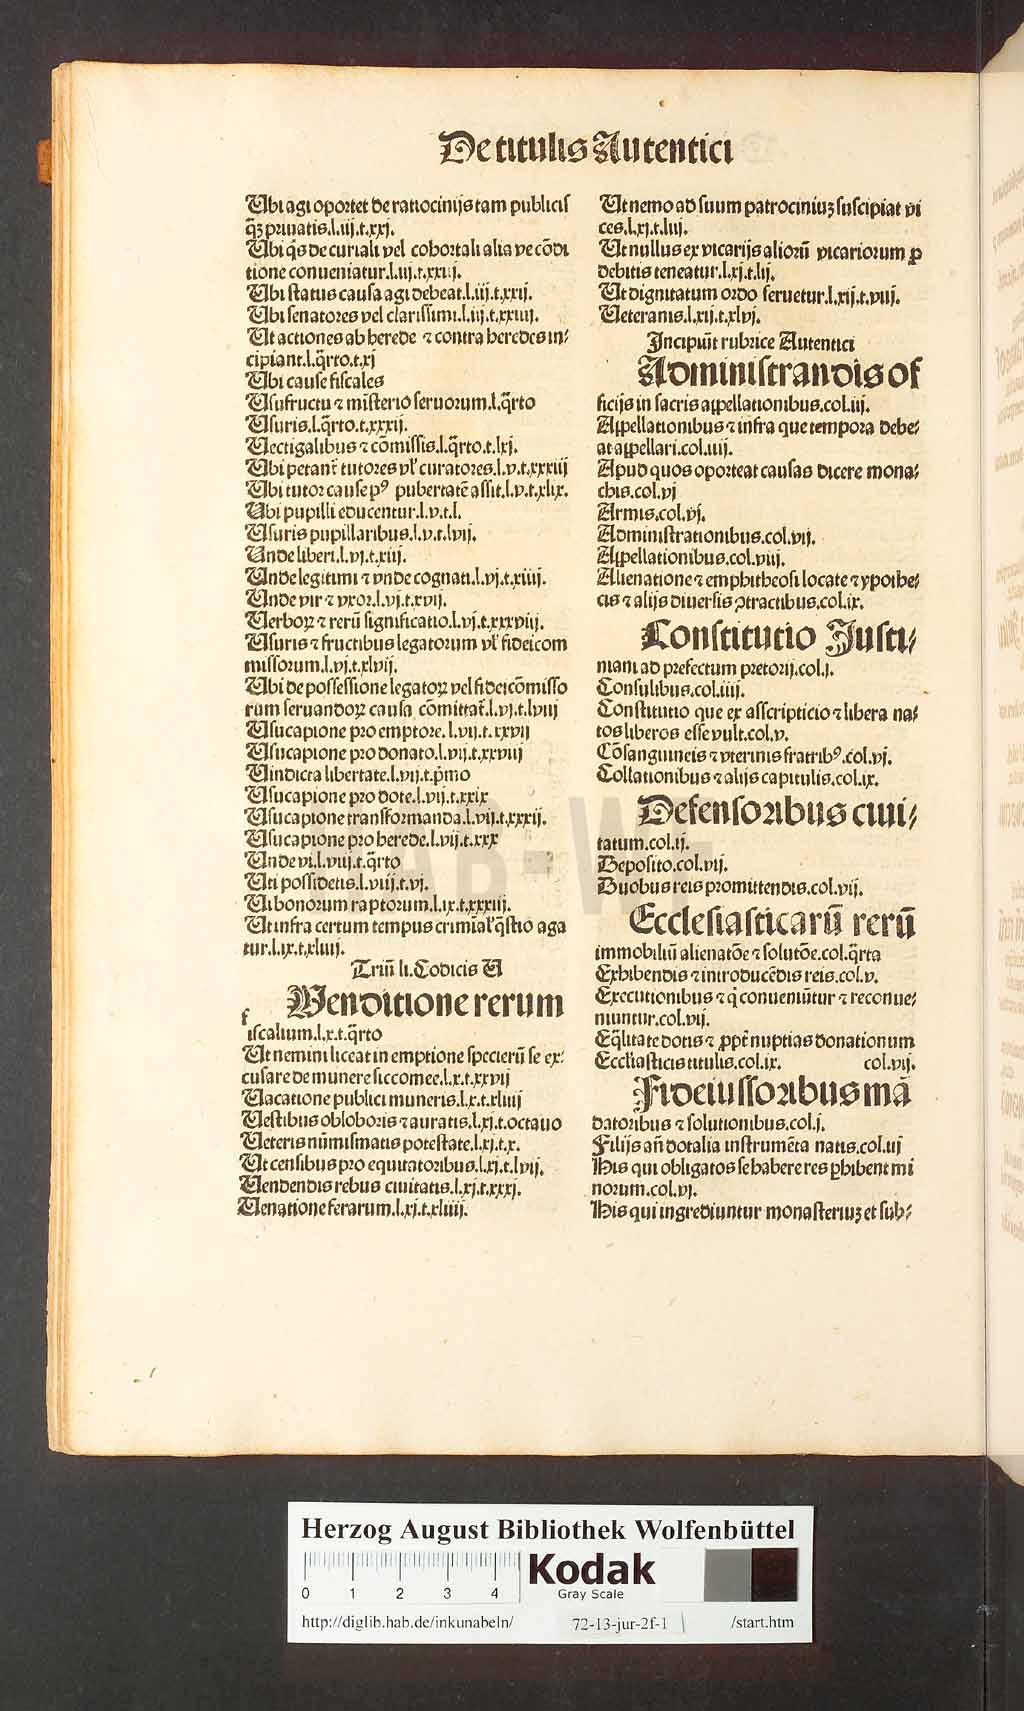 De titulis Autentici
Ubi agi oportet de ratiocinijs tam publicis
qꝫ priuatis.l.iij.t.xxj.
Ubi q̃s de curiali vel cohortali alia ve cõdi
tione conueniatur.l.iij.t.xxiij.
Ubi status causa agi debeat.l.iij.t.xxij.
Ubi senatores vel clarissimi.l.iij.t.xxiiij.
Ut actiones ab herede ⁊ contra heredes in⸗
cipiant.l.q̃rto.t.xj
Ubi cause fiscales
Usufructu ⁊ misterio seruorum.l.q̃rto
Usuris.l.q̃rto.t.xxxij.
Uectigalibus ⁊ cõmissis.l.q̃rto.t.lxj.
Ubi petant᷑ tutores vl̓ curatores.l.v.t.xxxiij
Ubi tutor cause pꝰ pubertatẽ assit.l.v.t.xlix.
Ubi pupilli educentur.l.v.t.l.
Usuris pupillaribus.l.v.t.lvij.
Unde liberi.l.vj.t.xiij.
Unde legitimi ⁊ vnde cognati.l.vj.t.xiiij.
Unde vir ⁊ vxor.l.vj.t.xvij.
Uerboꝝ ⁊ rerũ significatio.l.vj.t.xxxviij.
Usuris ⁊ fructibus legatorum vl̓ fideicom
missorum.l.vj.t.xlvij.
Ubi de possessione legatoꝝ vel fideicõmisso
rum seruandoꝝ causa cõmittat᷑.l.vj.t.lviij
Usucapione pro emptore.l.vij.t.xxvij
Usucapione pro donato.l.vij.t.xxviij
Uindicta libertate.l.vij.t.p̃mo
Usucapione pro dote.l.vij.t.xxix
Usucapione transformanda.l.vij.t.xxxij.
Usucapione pro herede.l.vij.t.xxx
Unde vi.l.viij.t.q̃rto
Uti possidetis.l.viij.t.vj.
Ui bonorum raptorum.l.ix.t.xxxiij.
Ut infra certum tempus crimial̓ q̃stio aga
tur.l.ix.t.xliiij.
Triũ li. Codicis U
Uenditione rerum
f
iscalium.l.x.t.q̃rto
Ut nemini liceat in emptione specierũ se ex⸗
cusare de munere siccomee.l.x.t.xxvij
Uacatione publici muneris.l.x.t.xliiij
Uestibus obloboris ⁊ auratis.l.xj.t.octauo
Ueteris nũmismatis potestate.l.xj.t.x.
Ut censibus pro equitatoribus.l.xj.t.lvij.
Uendendis rebus ciuitatis.l.xj.t.xxxj.
Uenatione ferarum.l.xj.t.xliiij.
Ut nemo ad suum patrociniuꝫ suscipiat vi
ces.l.xj.t.liij.
Ut nullus ex vicarijs alioꝝ vicariorum ꝓ
debitis teneatur.l.xj.t.lij.
Ut dignitatum ordo seruetur.l.xij.t.viij.
Ueteranis.l.xij.t.xlvj.
Incipiũt rubrice Autentici
Administrandis of
ficijs in sacris appellationibus.col.iij.
Appellationibus ⁊ infra que tempora debe⸗
at appellari.col.iiij.
Apud quos oporteat causas dicere mona⸗
chis.col.vj
Armis.col.vj.
Administrationibus.col.vij.
Appellationibus.col.viij.
Alienatione ⁊ emphitheosi locate ⁊ ypothe⸗
cis ⁊ alijs diuersis ꝯtractibus.col.ix.
Constitutio Justi⸗
niani ad prefectum pretorij.col.j.
Consulibus.col.iiij.
Constitutio que ex asscripticio ⁊ libera na⸗
tos liberos esse vult.col.v.
Cõsanguineis ⁊ vterinis fratribꝰ.col.vj.
Collationibus ⁊ alijs capitulis.col.ix.
Defensoribus ciui⸗
tatum.col.ij.
Deposito.col.vij.
Duobus reis promittendis.col.vij.
Ecclesiasticarũ rerũ
immobiliũ alienatõe ⁊ solutõe.col.q̃rta
Exhibendis ⁊ introducẽdis reis.col.v.
Executionibus ⁊ q̇ conueniũtur ⁊ reconue⸗
niuntur.col.vij.
Eq̃litate dotis ⁊ ꝓpt᷑ nuptias donationum
Eccl̓iasticis titulis.col.ix. col.vij.
Fideiussoribus mã
datoribus ⁊ solutionibus.col.j.
Filijs añ dotalia instrumẽta natis.col.iij
His qui obligatos se habere res ꝑhibent mi
norum.col.vj.
His qui ingrediuntur monasteriuꝫ et sub⸗
HAB-W-
Herzog August Bibliothek Wolfenbüttel
0 1 2 3 4
Kodak
Gray Scale
http://diglib.hab.de/inkunabeln/ 72-13-jur-2f-1 /start.htm